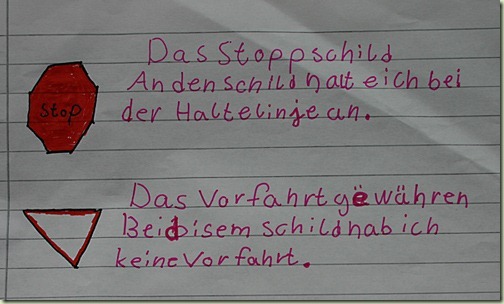 Das Stoppschild
An den schild halt e ich bei
Stop
der Haltelinje an.
Das Vorfahrt gewähren
Bei disem schild hab ich
keine Vorfahrt.